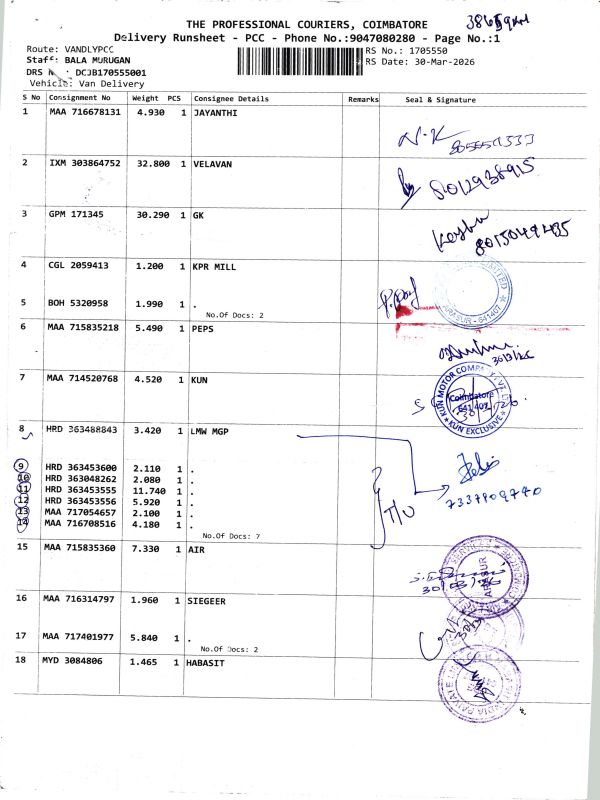 THE PROFESSIONAL COURIERS, COIMBATORE
Delivery Runsheet - PCC - Phone No.:9047080280 - Page No.:1
Route: VANDLYPCC
RS No.: 1705550
Staff: BALA MURUGAN
RS Date: 30-Mar-2026
DRS No.: DCJB170555001
Vehicle: Van Delivery
S No Consignment No Weight PCS Consignee Details Remarks Seal & Signature
1 MAA 716678131 4.930 1 JAYANTHI
N.K
2 IXM 303864752 32.800 1 VELAVAN
8012938915
3 GPM 171345 30.290 1 GK
8015049435
4 CGL 2059413 1.200 1 KPR MILL
LIMITED
ARASUR - 641407
5 BOH 5320958 1.990 1 .
No.Of Docs: 2
6 MAA 715835218 5.490 1 PEPS
30/3/26
7 MAA 714520768 4.520 1 KUN
KUN MOTOR COMPANY PVT LTD
Coimbatore
641 407
KUN EXCLUSIVE
8 HRD 363488843 3.420 1 LMW MGP
9 HRD 363453600 2.110 1 .
10 HRD 363048262 2.080 1 .
11 HRD 363453555 11.740 1 .
12 HRD 363453556 5.920 1 .
13 MAA 717054657 2.100 1 .
14 MAA 716708516 4.180 1 .
T/U
7337909740
No.Of Docs: 7
15 MAA 715835360 7.330 1 AIR
30/03/26
16 MAA 716314797 1.960 1 SIEGEER
17 MAA 717401977 5.840 1 .
No.Of Docs: 2
18 MYD 3084806 1.465 1 HABASIT